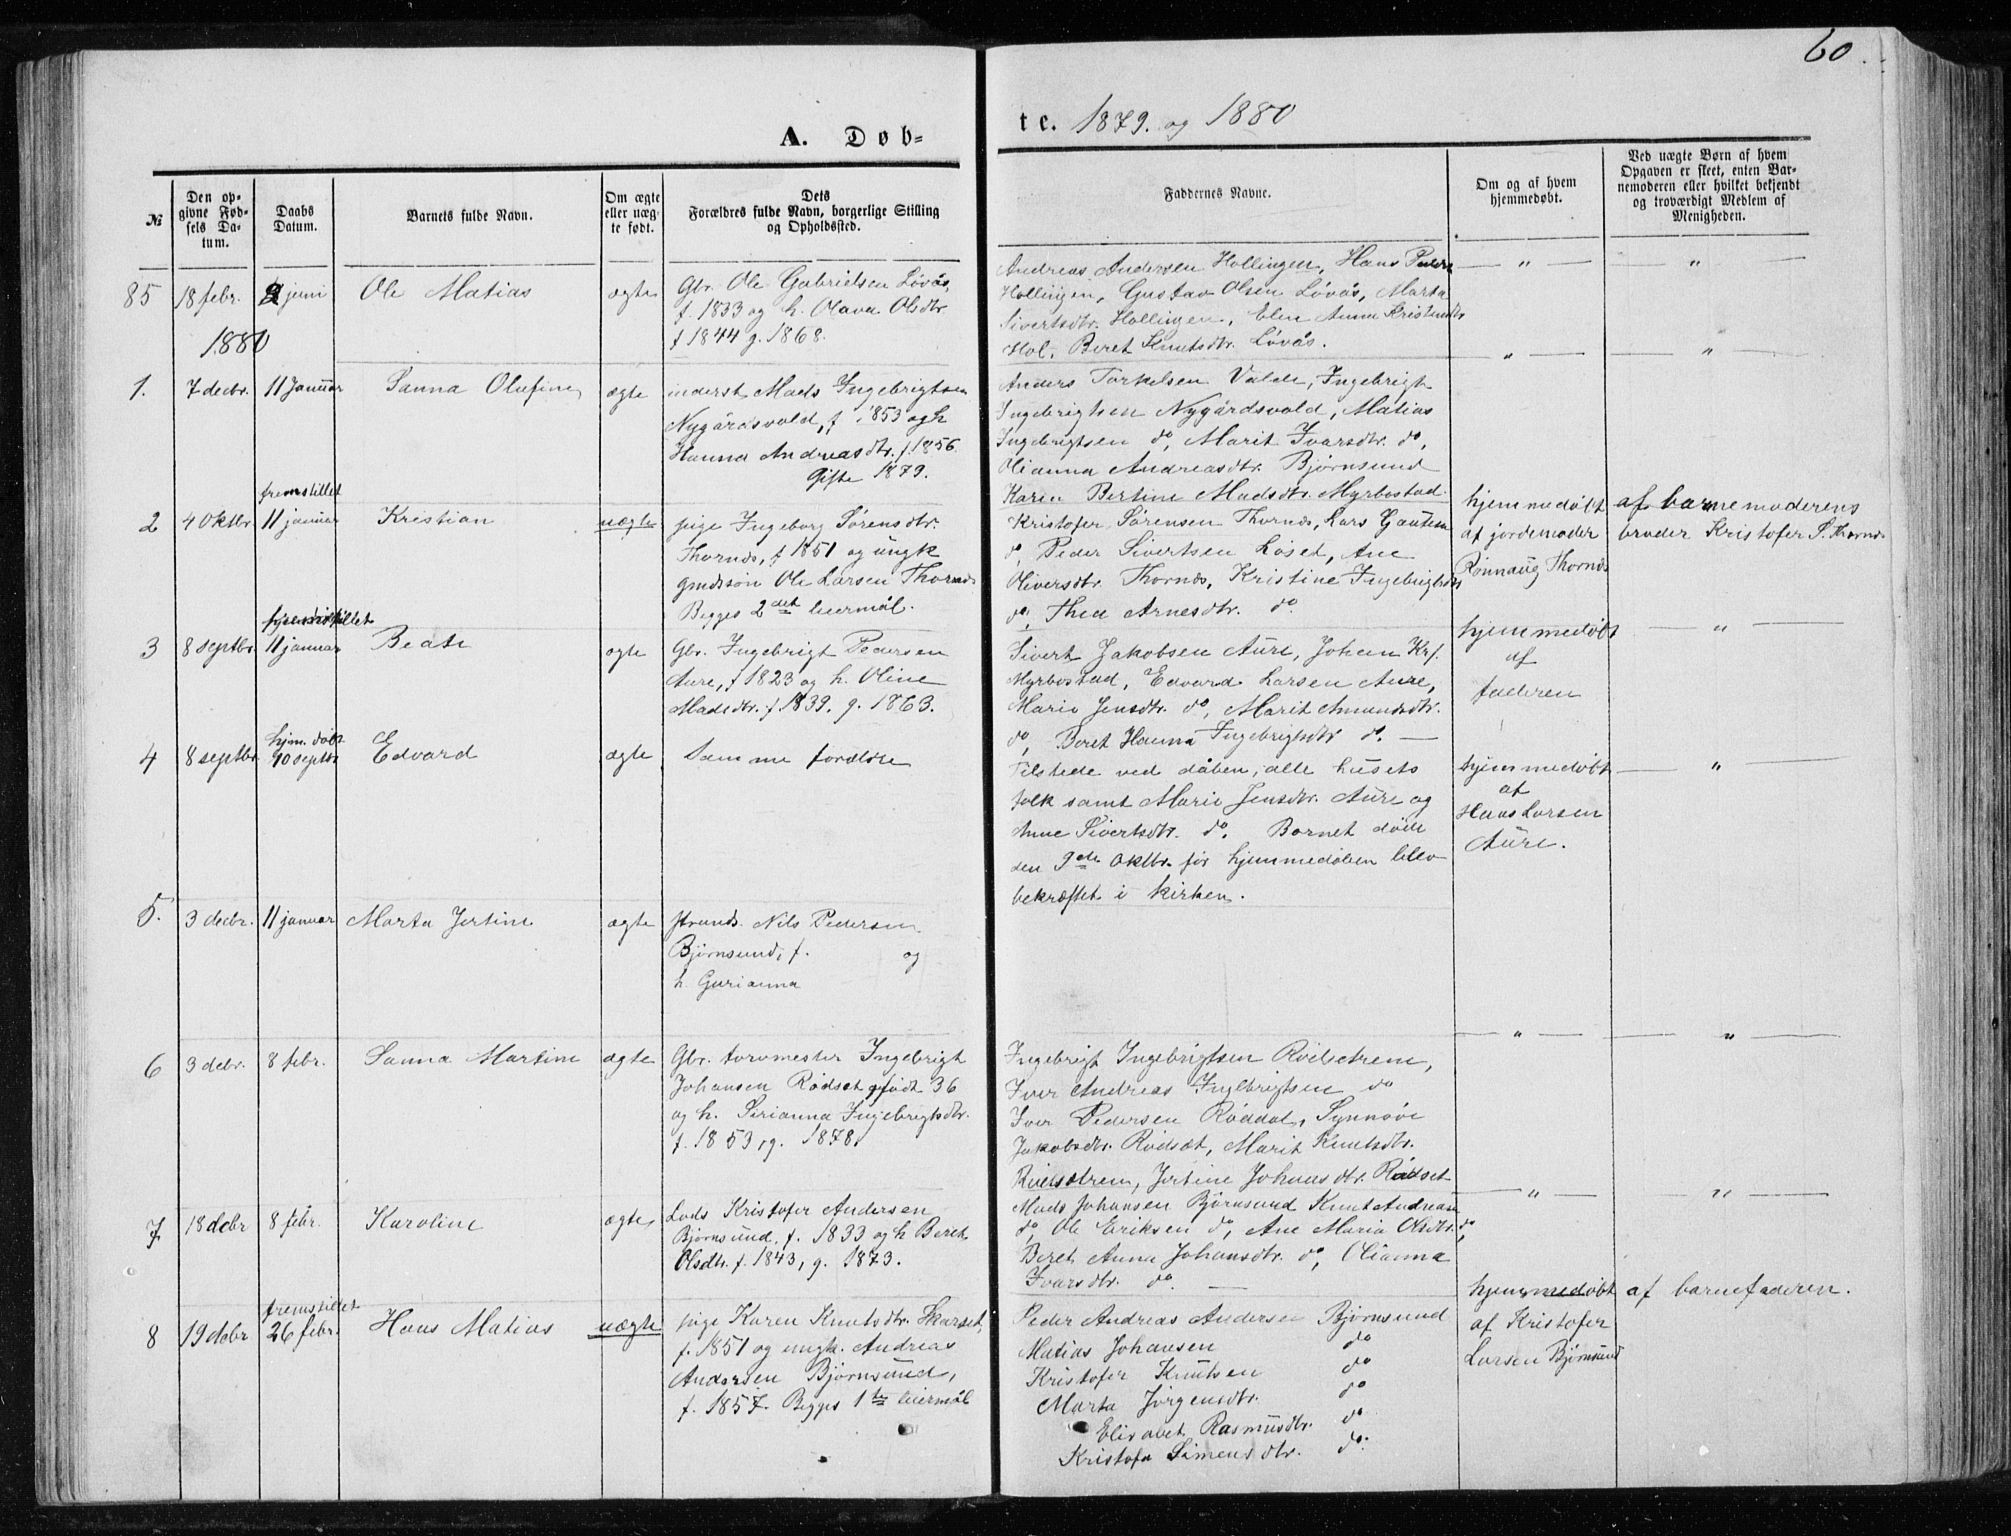 60.
A. Døb=
te. 1879. og 1880
№
Den op-
givne Fød-
sels Da-
tum.
Daabs
Datum.
Barnets fulde Navn.
Om ægte
eller uæg-
te født.
Dets
Forældres fulde Navn, borgerlige Stilling
og Opholdssted.
Faddernes Navne.
Om og af hvem
hjemmedøbt.
Ved uægte Børn af hvem
Opgaven er skeet, enten Bar-
nemoderen eller hvilket bekjendt
og troværdigt Medlem af
Menigheden.
85 18 febr. juni Ole Matias ægte
Gbr. Ole Gabrielsen Løvås,
f. 1833 og h. Olava Olsdtr.
f 1844 g. 1868.
Andreas Andersen Hollingen, Hans Peders
Hollingen, Gustav Olsen Løvås, Marta
Sivertsdtr. Hollingen, Elen Anna Kristensdtr
Hol, Beret Knutsdtr. Løvås.
— " — "
1880
1. 7 decbr. 11 Januar Sanna Olufine ægte
inderst Mads Ingebrigtsen
Nygårdsvold, f 1853 og h
Hanna Andreasdtr. f. 1856
Gifte 1879.
Anders Torkelsen Valde, Ingebrigt
Ingebrigtsen Nygårdsvold, Matias
Ingebrigtsen do, Marit Ivarsdtr. do,
Olianna Andreasdtr. Bjørnsund
Karen Bertine Madsdtr. Myrbostad.
" — "
2 4 oktbr. fremstillet
11 januar Kristian uægte
pige Ingeborg Sørensdtr.
Thornes, f 1851 og ungk
grndssøn Ole Larsen Thornes
Begges 2det leiermål.
Kristofer Sørensen Thornes, Lars Gautsen
do, Peder Sivertsen Løsed, Ane
Oliversdtr. Thornes, Kristine Ingebrigtsdtr
do, Thea Arnesdtr. do.
hjemmedøbt
af jordemoder
Rønnaug Thornes
af barnemoderens
broder Kristofer S. Thornes
3 8 septbr. fremstillet
11 januar Beate ægte
Gbr. Ingebrigt Pedersen
Aure, f 1823 og h. Oline
Madsdtr. f 1839. g. 1863.
Sivert Jakobsen Aure, Johan Krf.
Myrbostad, Edvard Larsen Aure,
Marie Jensdtr. do, Marit Amundsdtr.
do, Beret Hanna Ingebrigtsdtr do. —
hjemmedøbt
af
faderen
— " —
4 8 septbr. hjem. døbt
10 septbr Edvard ægte Samme forældre
Tilstede ved dåben, alle husets
folk samt Marie Jensdtr. Aure og
Anne Sivertsdtr. do. Barnet døde
den 9de oktbr. før hjemmedåben blev
bekræftet i kirken.
hjemmedøbt
af
Hans Larsen
Aure.
— " —
5. 3 decbr. 11 januar Marta Jertine ægte
Strands. Nils Pedersen
Bjørnsund, f. og
h. Gurianna
6 3 debr. 8 febr. Sanna Martine ægte
Gbr. tørvmester Ingebrigt
Johansen Rødset, født 36
og h. Serianna Ingebrigtsdtr.
f. 1853, g. 1878.
Ingebrigt Ingebrigtsen Rødsetrem,
Iver Andreas Ingebrigtsen do
Iver Pedersen Røddal, Synnøve
Jakobsdtr. Rødset, Marit Knutsdtr.
Rødsetrem, Jertine Johansdtr. Rødset
— " — "
7 18 debr 8 febr. Karoline ægte
Lods Kristofer Andersen
Bjørnsund. f. 1833 og h Beret
Olsdtr. f. 1843, g. 1873.
Mads Johansen Bjørnsund Knut Andreas
do, Ole Eriksen do, Ane Maria Olsdtr. do,
Beret Anna Johansdtr. do, Olianna
Ivarsdtr. do. —
— " — "
8 19 debr fremstillet
26 febr. Hans Matias uægte
pige Karen Knutsdtr. Skarset,
f. 1851 og ungk. Andreas
Andersen Bjørnsund,
f. 1857. Begges 1te leiermål
Peder Andreas Andersen Bjørnsund
Matias Johansen do
Kristofer Knutsen do
Marta Jørgensdtr. do
Elisabet Rasmusdtr. do
Kristofa Simensdtr. do.
hjemmedøbt
af Kristofer
Larsen Bjørnsund
af barnefaderen.